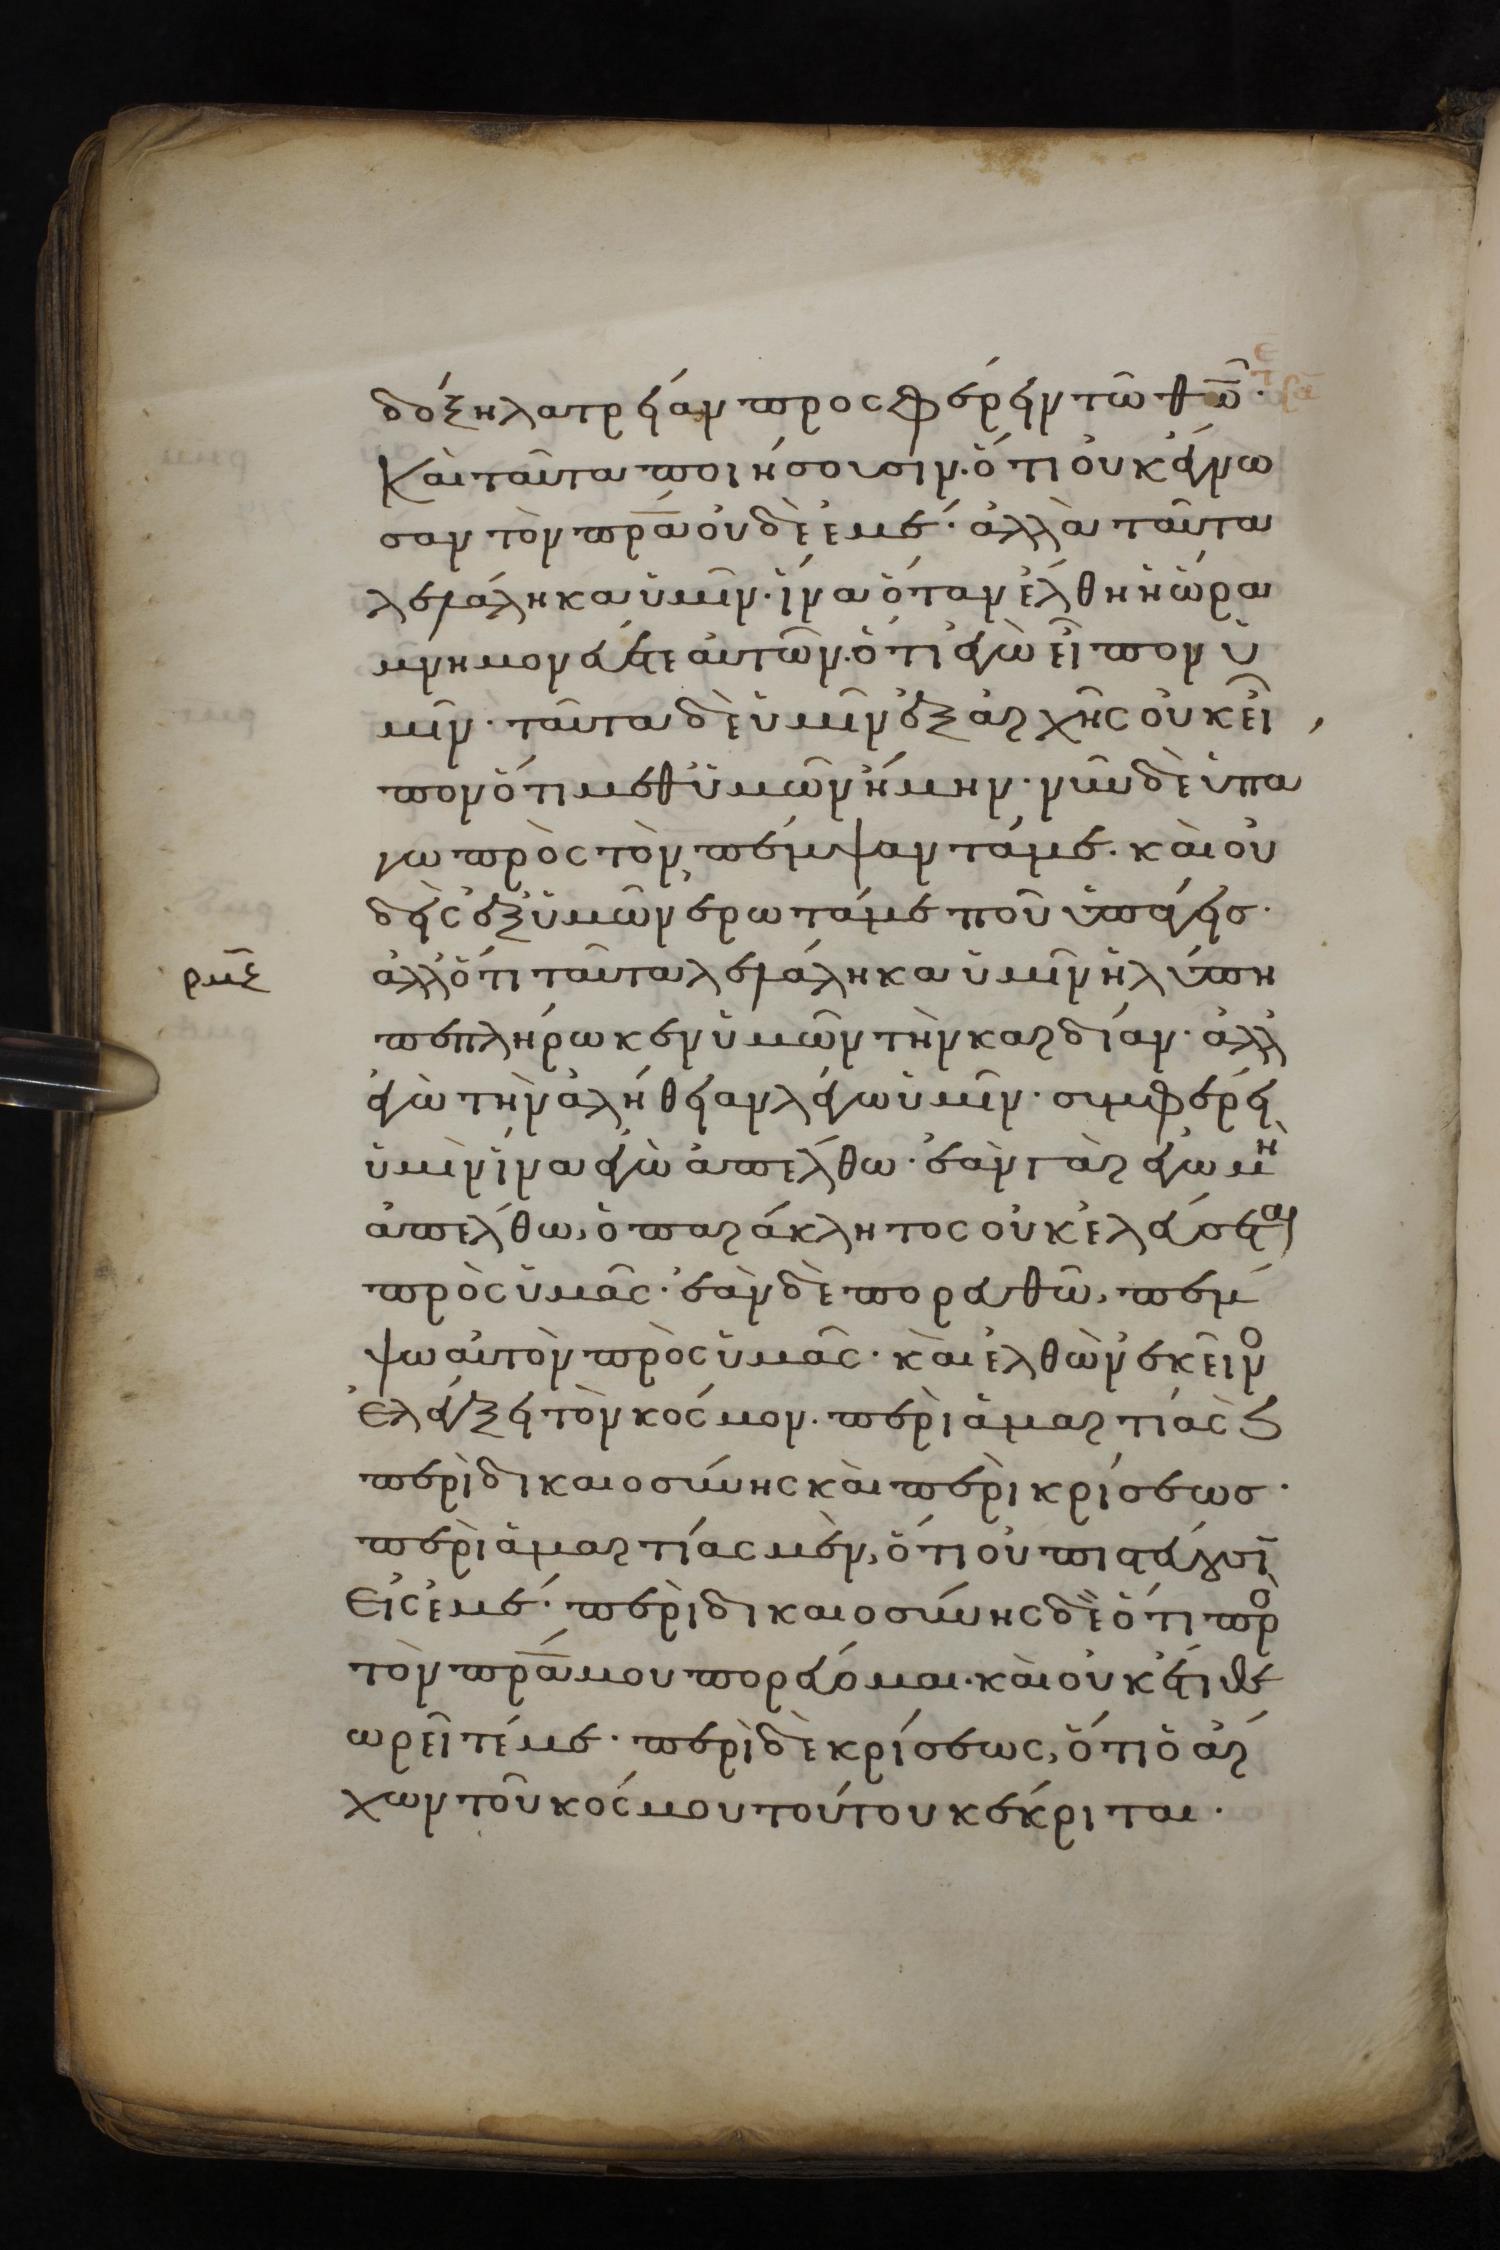 δόξη λατρείαν προσφέρειν τῶ θ̅ω̅·
Καὶ ταῦτα ποιήσουσιν· ὅτι οὐκ ἔγνω
σαν τὸν πρ̅α̅ οὐδὲ ἐμέ· ἀλλὰ ταῦτα
λελάληκα ὑμῖν· ἵνα ὅταν ἔλθη ἡ ὥρα
μνημονεύητε αὐτῶν· ὅτι ἐγὼ εἶπον ὑ
μῖν· ταῦτα δὲ ὑμῖν ἐξ ἀρχῆς οὐκ εἶ
πον ὅτι μεθ ὑμῶν ἤμην· νῦν δὲ ὑπά
γω πρὸς τὸν πέμψαντά με· καὶ οὐ
δεὶς ἐξ ὑμῶν ἐρωτᾶ με ποῦ ὑπάγεις·
ρμϛ ἀλλ ὅτι ταῦτα λελάληκα ὑμῖν ἡ λύπη
πεπλήρωκεν ὑμῶν τὴν καρδίαν· ἀλλ
ἐγὼ τὴν ἀλήθειαν λέγω ὑμῖν· συμφέρει
ὑμὶν ἵνα ἐγὼ ἀπέλθω· ἐὰν γὰρ ἐγὼ μὴ
ἀπέλθω, ὁ παράκλητος οὐκ ἐλεύσεται
πρὸς ὑμᾶς· ἐὰν δὲ πορευθῶ, πέμ
ψω αὐτὸν πρὸς ὑμᾶς· καὶ ἐλθὼν ἐκεῖνο
ἐλέγξει τὸν κόσμον· περὶ ἁμαρτίας ϗ
περὶ δικαιοσύνης καὶ περὶ κρίσεως·
περὶ ἁμαρτίας μὲν, ὅτι οὐ πιστεύουσι
εἰς ἐμέ· περὶ δικαιοσύνης δὲ ὅτι πρὸ
τὸν πρ̅α̅ μου πορεύομαι· καὶ οὐκ ἔτι θε
ωρεῖτέ με· περὶ δὲ κρίσεως, ὅτι ὁ ἄρ
χων τοῦ κόσμου τούτου κέκριται·